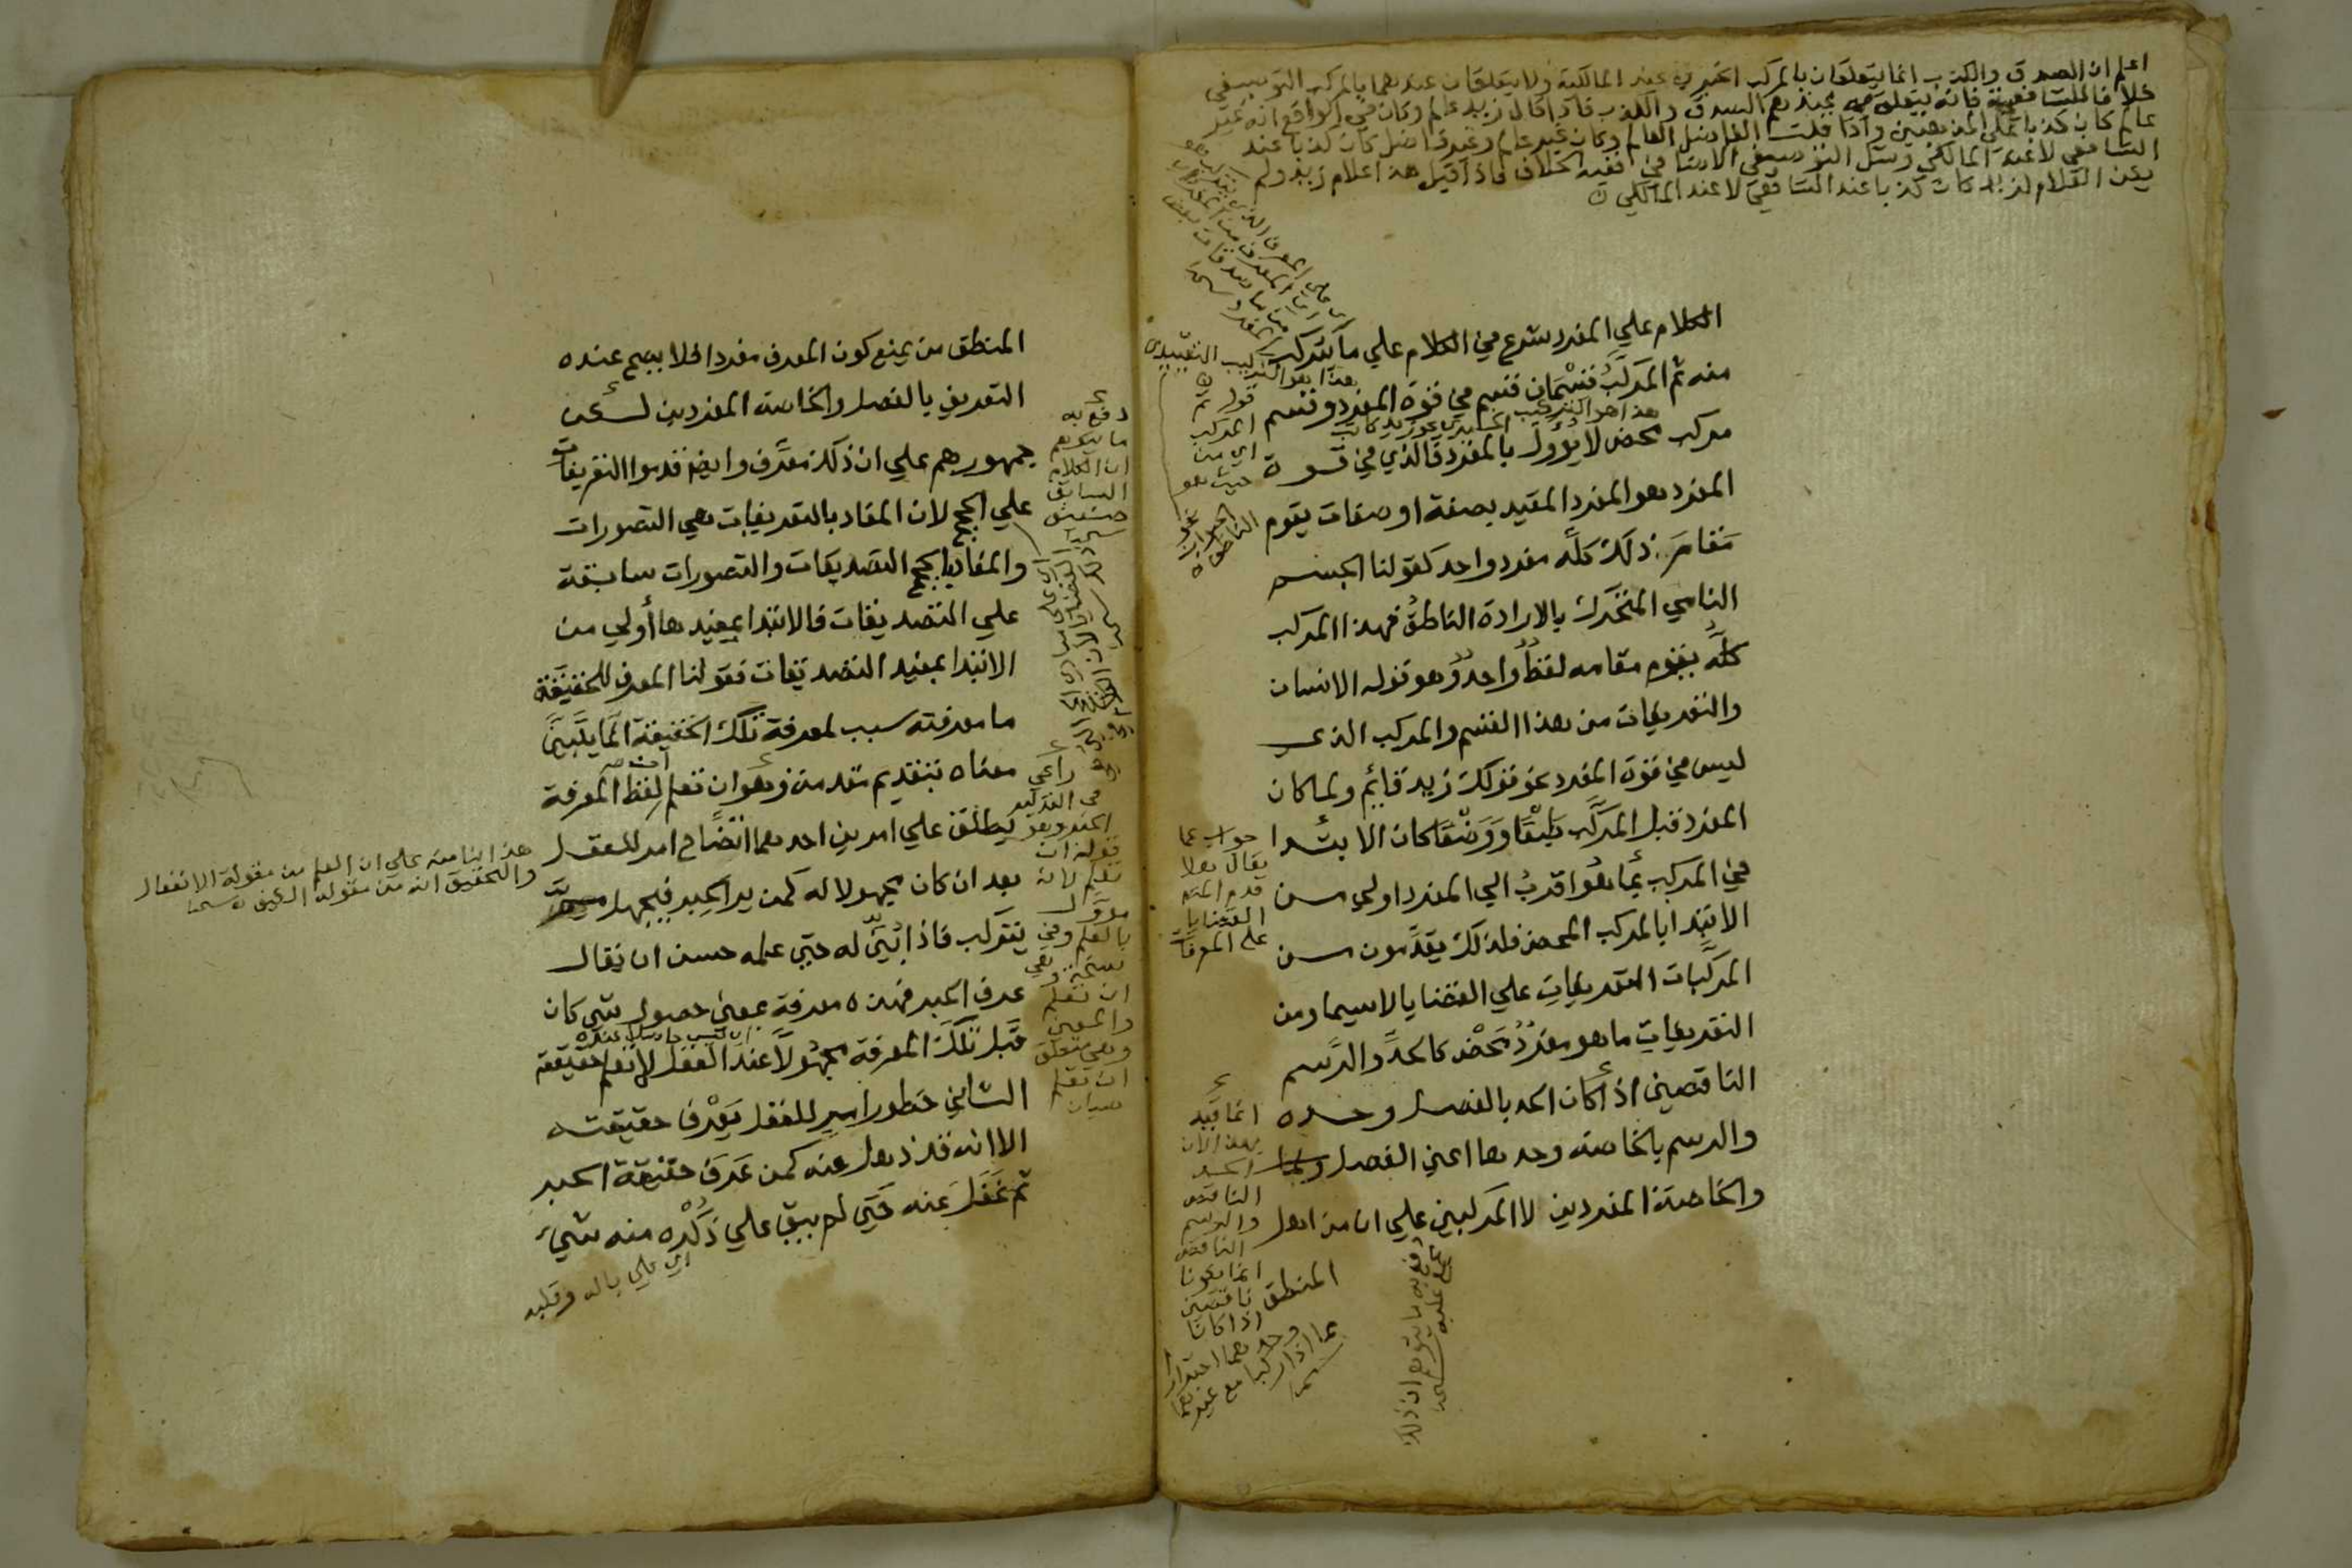 اعلم ان الصدق والكذب انما يتعلقان بالمركب الخبري عند المالكية ولا يتعلقان عندهما بالمركب التوصيفي
خلافا للشافعية فانه يتعلق به عندهم الصدق والكذب فاذا قال زيد عالم وكان في الواقع انه غير
عالم كان كذبا على المذهبين واذا قلت الفاضل العالم وكان غير عالم وغير فاضل كان كذبا عند
الشافعي لا عند المالكي ومثل التوصيفي الاضافي ففيه الخلاف فاذا قيل هذا غلام زيد ولم
يكن الغلام لزيد كان كذبا عند الشافعي لا عند المالكي
الكلام علي المفرد شرع في الكلام علي ما يتركب
هذا هو التركيب التقييدي
منه ثم المركب قسمان قسم في قوة المفرد وقسم
هذا هو التركيب
مركب محض لا يؤول بالمفرد فالذي في قوة
المفرد هو المفرد المقيد بصفة او صفات يقوم
مقام ذلك كله مفرد واحد كقولنا الجسم
النامي المتحرك بالارادة الناطق فهذا المركب
كله يقوم مقامه لفظ واحد وهو قوله الانسان
والتعريفات من هذا القسم والمركب الذي
ليس في قوة المفرد نحو قولك زيد قائم ولما كان
المفرد قبل المركب طبعا ووضعا كان الابتدا
في المركب بما هو اقرب الي المفرد اولي من
الابتدا بالمركب المحض فلذلك يقدمون من
المركبات التعريفات علي القضايا لاسيما ومن
التعريفات ما هو مفرد محض كالحد والرسم
الناقصين اذا كان الحد بالفصل وحده
والرسم بالخاصة وحدها اعني الفصل
والخاصة المفردين لا المركبين علي ان من اهل
المنطق
قوله ثم
المركب
اي من
حيث هو
جواب عما
يقال هلا
قدم المصنف
القضايا
على المعرفات
انما قيد
بهذا لان
الحد
الناقص
والرسم
الناقص
انما يكونا
ناقصين
اذا كانا
وحدهما احترازا
عما اذا ركبا مع غيرهما
المنطق من يمنع كون المعرف مفردا فلا يصح عنده
التعريف بالفصل والخاصة المفردين لكن
جمهورهم علي ان ذلك معرف وايضا قدموا التعريفات
علي الحجج لان المفاد بالتعريفات هي التصورات
والمفاد بالحجج التصديقات والتصورات سابقة
علي التصديقات فالابتدا بمفيدها أولي من
الابتدا بمفيد التصديقات فقولنا المعرف للحقيقة
ما معرفته سبب لمعرفة تلك الحقيقة انما يتبين
معناه بتقديم مقدمة وهو ان تعلم ان لفظ المعرفة
يطلق علي امرين احدهما اتضاح امر للعقل
بعد ان كان مجهولا له كمن ير الحبر فيجهل
يتركب فاذا بُيِّن له حتي علمه حسن ان يقال
عرف الحبر فهذه معرفة بمعني حصول شي كان
قبل تلك المعرفة مجهولا عند العقل لا تعلم حقيقته
الثاني خطور امر للعقل يعرف حقيقته
الا انه قد ذهل عنه كمن عرف حقيقة الحبر
ثم غفل عنه حتي لم يبق علي ذكره منه شيء
اي علي باله وقلبه
دفع به
ما يتوهم
ان الكلام
السابق
راعي
في التركيب
قوله ان
تعلم لانه
مؤول
بالعلم وفي
نسخة وهي
ان تعلم
والمعني
هذا بنا منه علي ان العلم من مقولة الانفعال
والتحقيق انه من مقولة الكيف